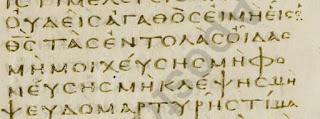 ΟΥΔΕΙϹΑΓΑΘΟϹΕΙΜΗΕΙϹ
ΘϹΤΑϹΕΝΤΟΛΑϹΟΙΔΑϹ
ΜΗΜΟΙΧΕΥϹΗϹΜΗΦΟ
ΝΕΥϹΗϹΜΗΚΛΕΨΗϹΜΗ
ΨΕΥΔΟΜΑΡΤΥΡΗϹΤΙΜΑ